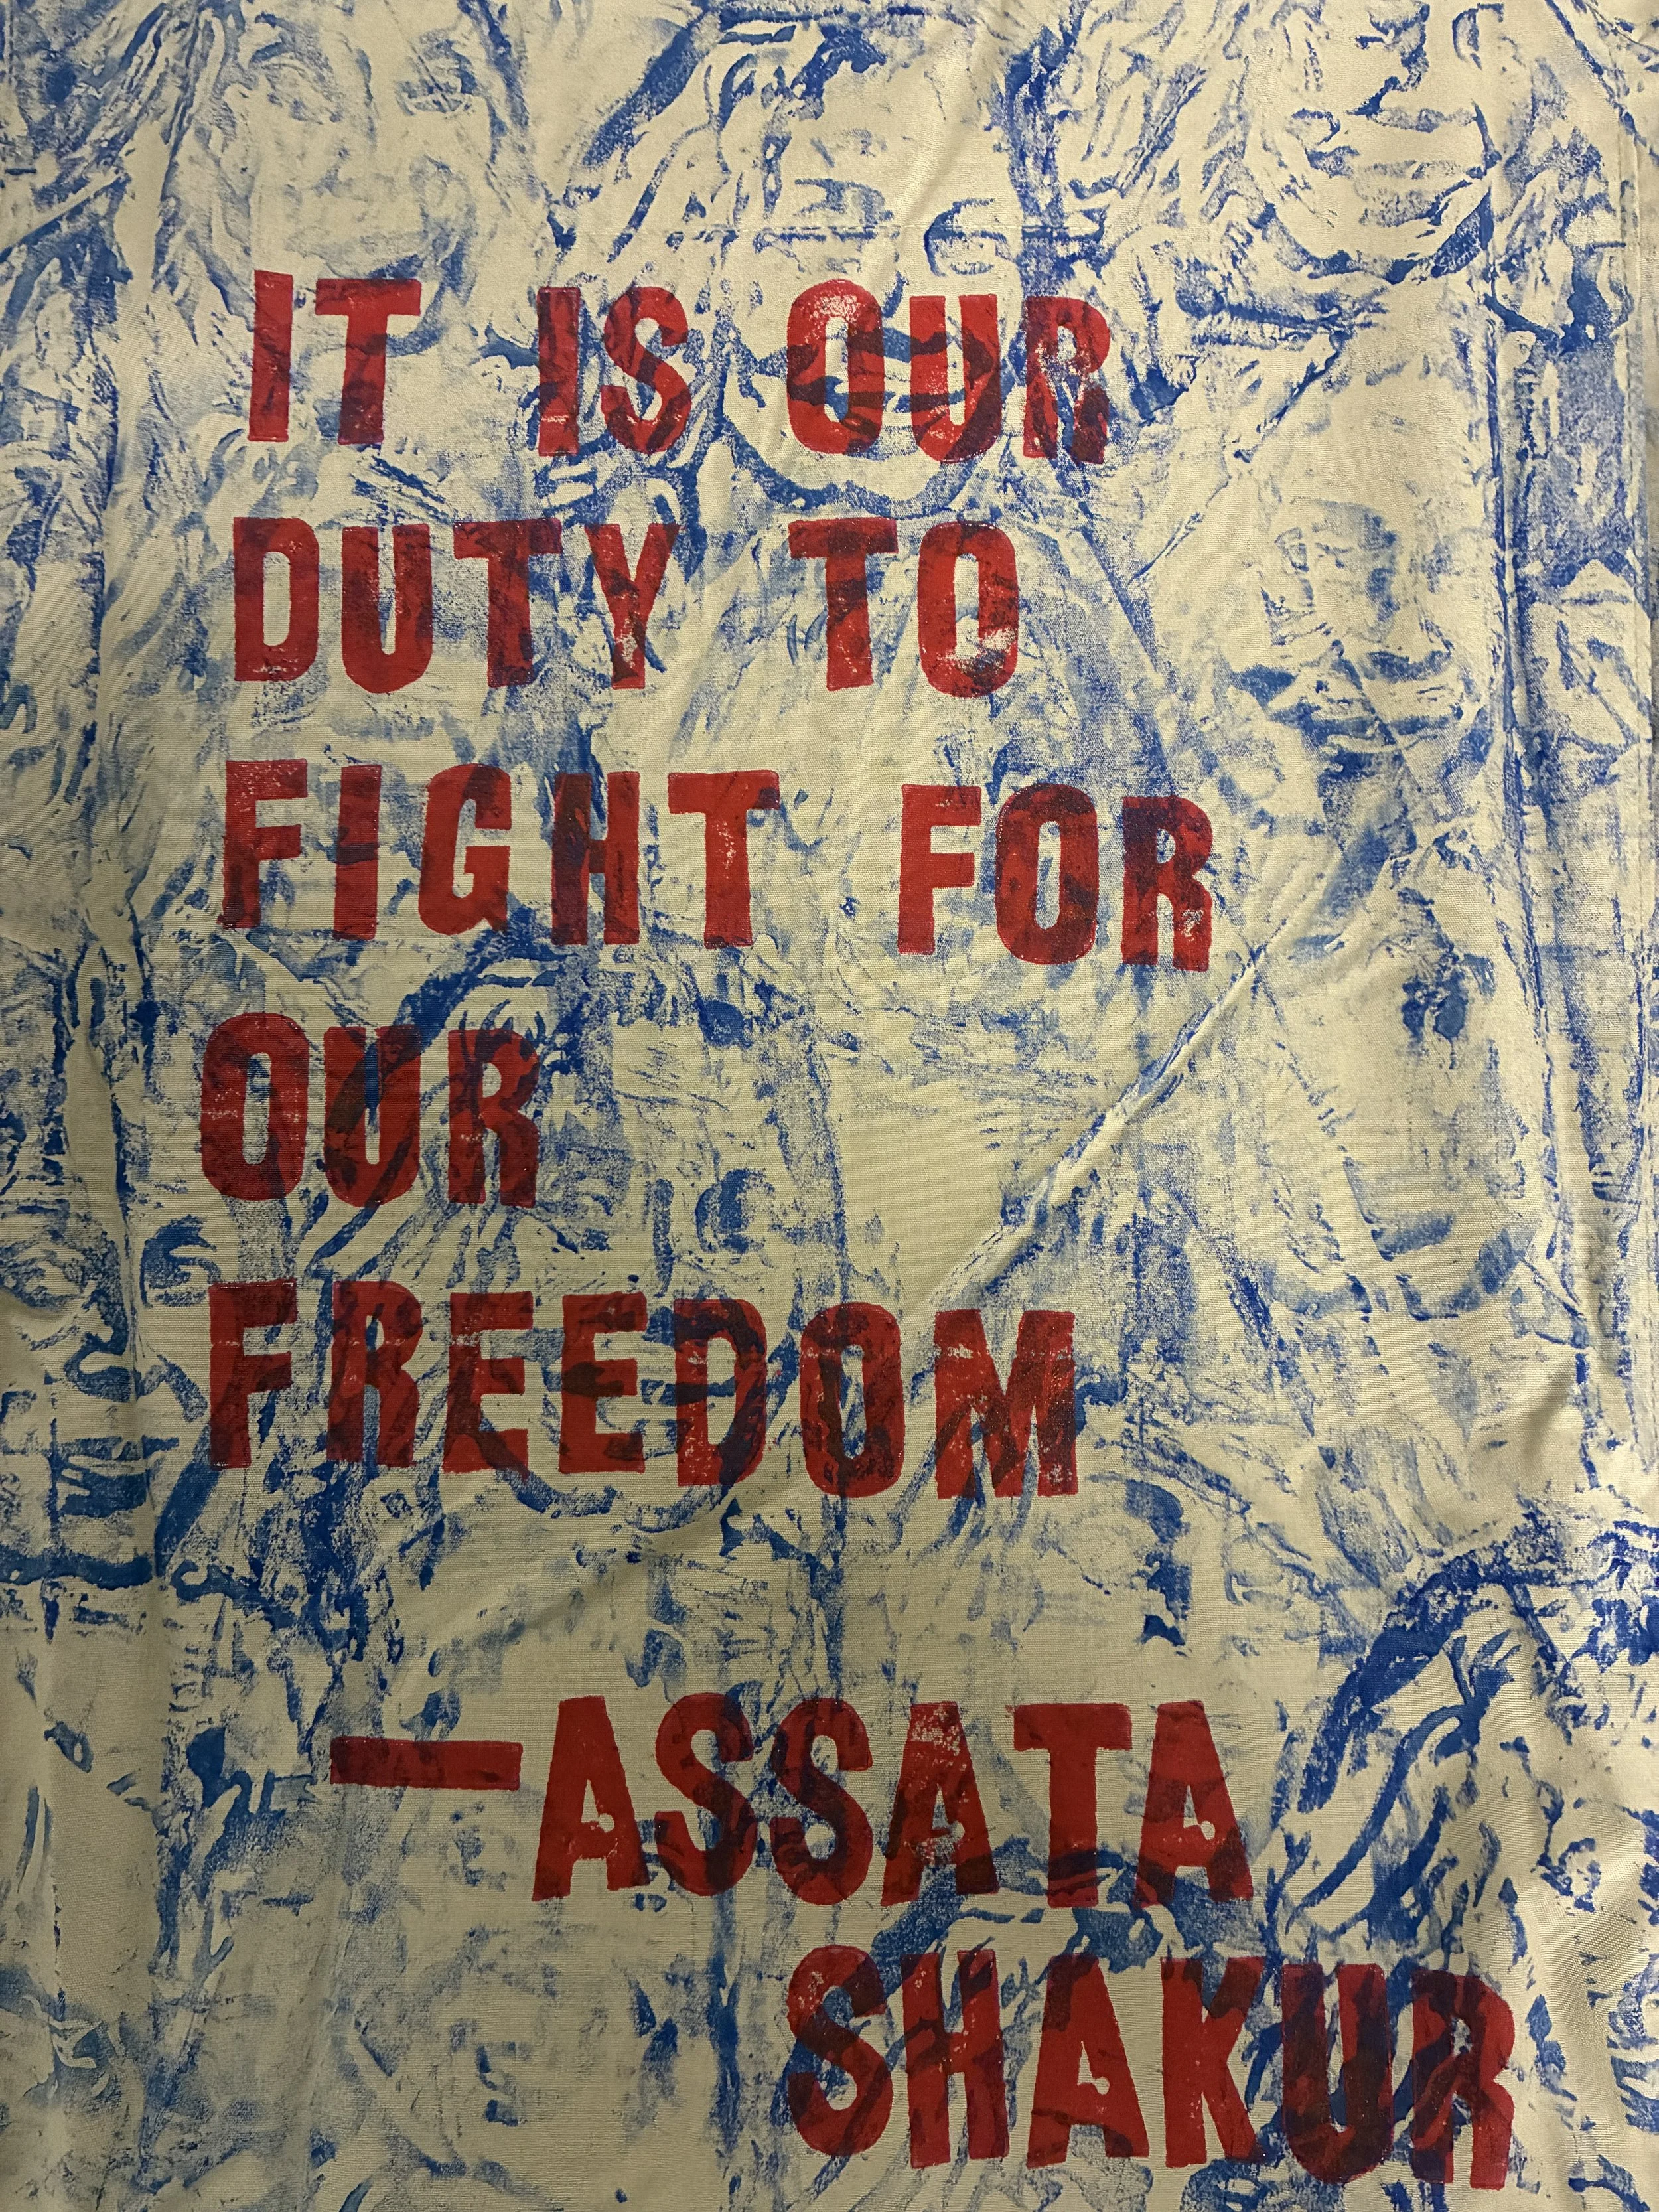 IT IS OUR
DUTY TO
FIGHT FOR
OUR
FREEDOM
—ASSATA
SHAKUR